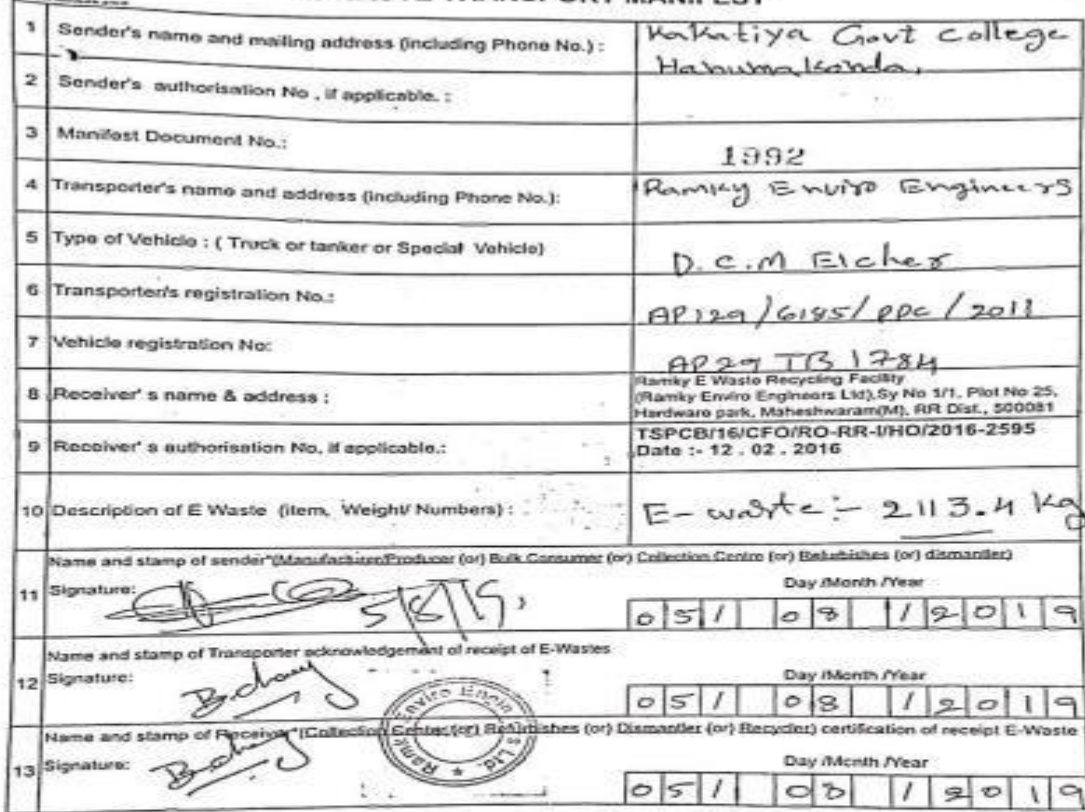 1 Sender's name and mailing address (including Phone No.) : Kakatiya Govt College
Hanumakonda,
2 Sender's authorisation No , if applicable. :
3 Manifest Document No.: 1992
4 Transporter's name and address (including Phone No.): Ramky Enviro Engineers
5 Type of Vehicle : ( Truck or tanker or Special Vehicle) D.C.M Eicher
6 Transporter's registration No.: AP129/6185/PPC/2011
7 Vehicle registration No: AP29 TB 1784
8 Receiver' s name & address : Ramky E Waste Recycling Facility
(Ramky Enviro Engineers Ltd),Sy No 1/1, Plot No 25,
Hardware park, Maheshwaram(M), RR Dist., 500081
9 Receiver' s authorisation No, if applicable.: TSPCB/16/CFO/RO-RR-I/HO/2016-2595
Date :- 12 . 02 . 2016
10 Description of E Waste (item, Weight/ Numbers) : E-waste:- 2113.4 Kg
Name and stamp of sender*(Manufacturer/Producer (or) Bulk Consumer (or) Collection Centre (or) Refurbishes (or) dismantler)
11 Signature: 5/8/19, Day /Month /Year
05/ 08 /2019
Name and stamp of Transporter acknowledgement of receipt of E-Wastes
12 Signature: Day /Month /Year
05/ 08 /2019
Name and stamp of Receiver*(Collection Center (or) Refurbishes (or) Dismantler (or) Recycler) certification of receipt E-Waste
13 Signature: Day /Month /Year
05/ 08 /2019
Ramky Enviro Engin s Ltd